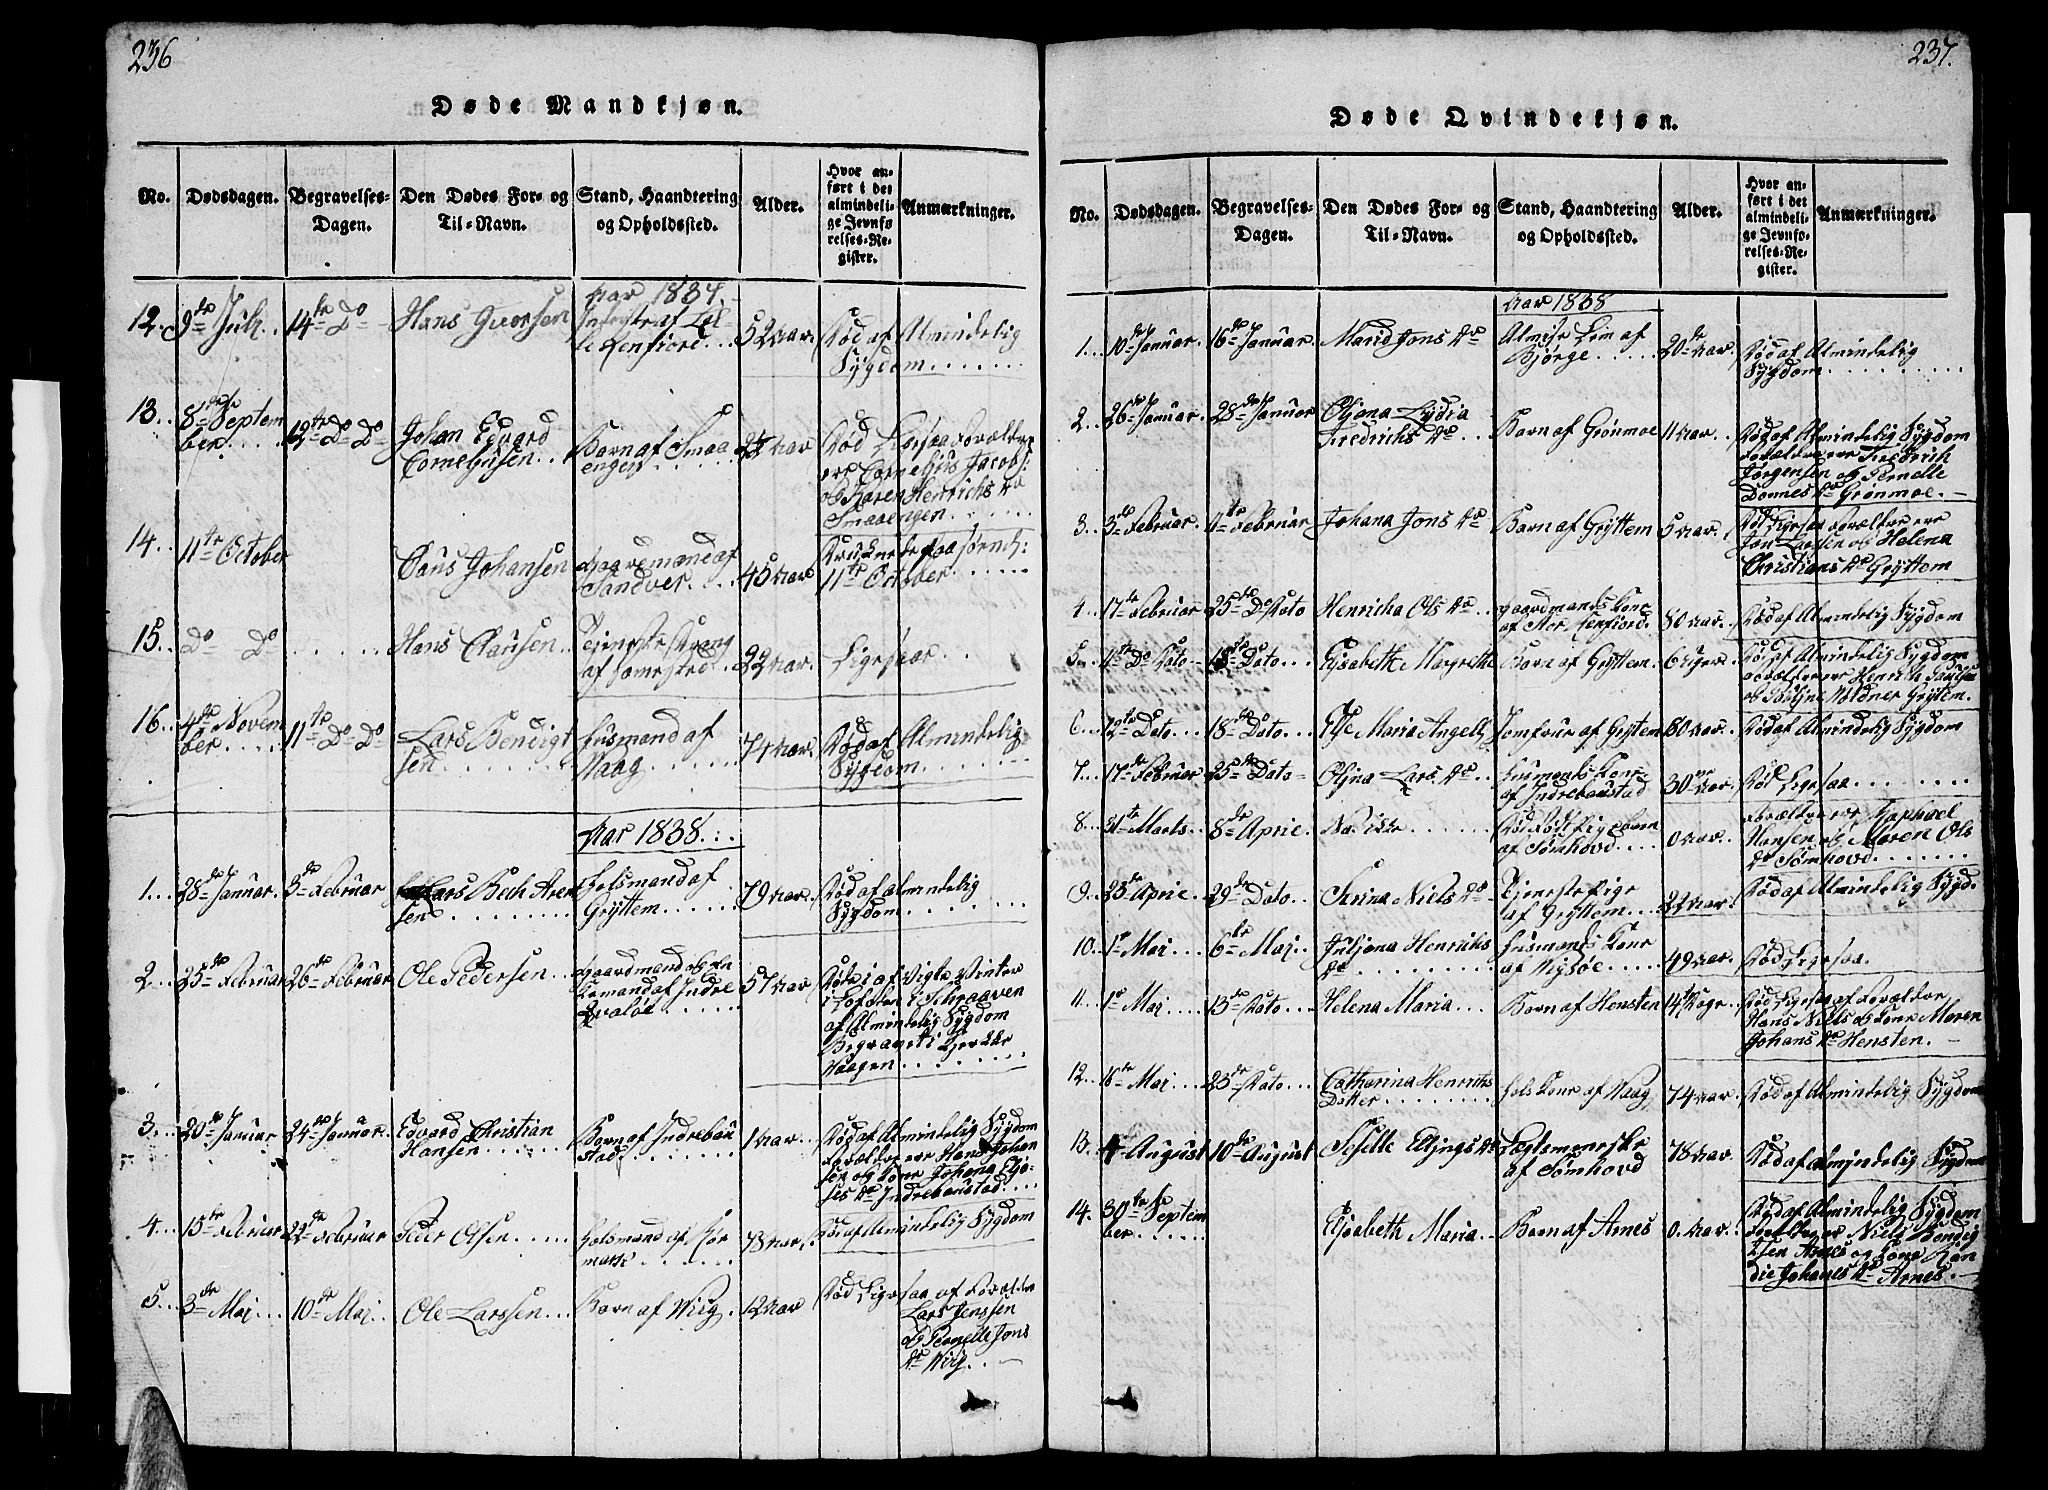 236
Døde Mandkjøn.
No.
Dødsdagen.
Begravelses-
Dagen.
Den Dødes For- og
Til-Navn.
Stand, Haandtering
og Opholdssted.
Alder.
Hvor an-
ført i det
almindeli-
ge Jevnfø-
relses-Re-
gister.
Anmærkninger.
Aar 1837.
12. 9de Julj. 14de Do Hans Aar Død af Almindelig
Sygdom
13. 8de Septem
ber. 12te Do Do Johan Edvard
Corneljusen Barn af Smaa
engen Aar Død Ligesaa Forældre
ere Corneljus Jacobs:
og Karen Henrichs Do
Smaaengen
14. 11te October Claus Johansen Gaardmand af
Sandver. 45 Aar Druknede paa Søen d:
11te October
15. Do Do Hans Clausen Tjeneste Dreng
af 22 Aar. Ligesaa
16. 4de Novem
ber. 11te Do Do Lars Bendigt
sen Husmand af
Vaag 74 Aar. Død af Almindelig
Sygdom
Aar 1838.
1. 28de Januar. 3de Februar Lars Bech Aren
sen Holsmand af
Gryttem 79 Aar. Død af Almindelig
Sygdom
2. 25de Februar 26de Februar Ole Pedersen Gaardmand og En
kemand af Indre
Qvaløe 57 Aar Døde i af Vigte Vinter
i Lofoten i Schraaven
af Almindelig Sygdom
Begravet i Kjerkke
Vaagen
3. 20de Januar 24de Januar. Edvard Christian
Hansen Barn af Indrebau
stad 1 Aar Død af Almindelig Sygdom
Forældre ere Hans Johan
sen og Kone Johana Elja-
ses Do Indrebaustad.
4. 15te Februar 22de Februar Peder Olsen Holsmand af Kør
mark 78 Aar. Død af Almindelig Sygdom
5. 3de Maj 10de Maj Ole Larssen Barn af Viig 12 Aar Død Ligesaa af Forældre
Lars Jenssen
og Pernelle Jons
Do Viig.
237.
Døde Qvindekjøn.
No.
Dødsdagen.
Begravelses-
Dagen.
Den Dødes For- og
Til-Navn.
Stand, Haandtering
og Opholdssted.
Alder.
Hvor an-
ført i det
almindeli-
ge Jevnfø-
relses-Re-
gister.
Anmærkninger.
Aar 1838
1. 10de Januar. 16de Januar. Marid Jons Do Almisse Lem af
Bjørge 20de Aar. Død af Almindelig
Sygdom
2. 26de Januar. 28de Januar Oljana Lydia
Fredrichs Do Barn af Grønmoe 11 Aar. Død af Almindelig Sygdom
Forældre ere Fredrich
Jørgensen og Pernelle
Donnes Do Grønmoe.
3. 3de Februar. 11te Februar Johana Jons Do Barn af Gryttem 5 Aar. Død Ligesaa Forældre ere
Jon Larssen og Helena
Christians Do Gryttem
4. 17de Februar 25de Do Dato Henricha Ols Do Gaardmands Kone
af 80 Aar. Død af Almindelig Sygdom
5. 11te Do Dato 18de Dato Elisabeth Margrethe Barn af Gryttem. 6 Uger. Død af Almindelig Sygdom
Forældre ere Henrich
og Gryttem.
6. 12te Dato 18de Dato Else Maria Angell Jomfrue af Gryttem 80 Aar. Død af Almindelig Sygdom
7. 17de Februar 25de Dato Oljna Lars Do Husmands Kone
af Indrebaustad 30 Aar. Død Ligesaa
8. 31te Marts 8de Aprie. Død Født Pigebarn
af Sømhovd 0 Aar. Forældre ere
Hansen og Maren Ols
Do Sømhovd
9. 23de Aprie 29de Dato Serina Niels Do Tjeneste Pige
af Gryttem 22 Aar. Død af Almindelig Sygd.
10. 1te Maj 6te Maj Juljana Henrichs
Do Husmands Kone
af Vigsøe 49 Aar. Død Ligesaa.
11. 1te Maj 13de Dato Helena Maria Barn af Hensten 14ten Dage. Død Ligesaa af Forældre
Hans Niels og Kone Maren
Johans Do Hensten.
12. 16te Maj 23de Dato Catharina Henrichs
Datter Hols Kone af Vaag 74 Aar. Død af Almindelig Sygdom
13. 4de August 10de August Seselle Eljngs Do Lægdsmenneske
af Sømhovd 78 Aar. Død af Almindelig Sygdom
14. 30te Septem
ber Eljsabeth Maria Barn af Arnes 0. Aar. Død af Almindelig Sygdom
Forældre er Niels Bendig
tsen Arnes og Kone Kan
die Johanes Do Arnes.